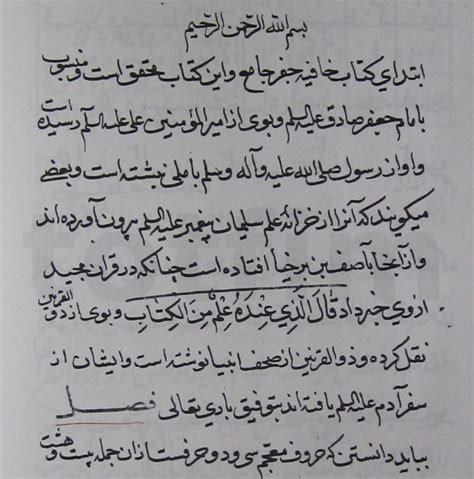 بسم الله الرحمن الرحیم
ابتدای کتاب خافیه جفر جامع و این کتاب محقق است و منسوب
بامام جعفر صادق علیه السلم و بوی از امیر المؤمنین علی علیه السلم رسیده است
و او از رسول صلی الله علیه و آله و سلم باملی نبشته است و بعضی
میکویند که آنرا از خزانهٔ علم سلیمان پیغمبر علیه السلم بیرون آورده اند
و از آنجا بآصف بن برخیا افتاده است چنانکه در قران مجید
از وی خبر داد قال الذی عنده علم من الکتاب و بوی از ذو القرنین
نقل کرده و ذو القرنین از صحف انبیا نوشته است و ایشان از
سفر آدم علیه السلم یافته اند بتوفیق باری تعالی فصل
بباید دانستن که حروف معجم سی و دو حرفست از ان جمله بیست و هشت